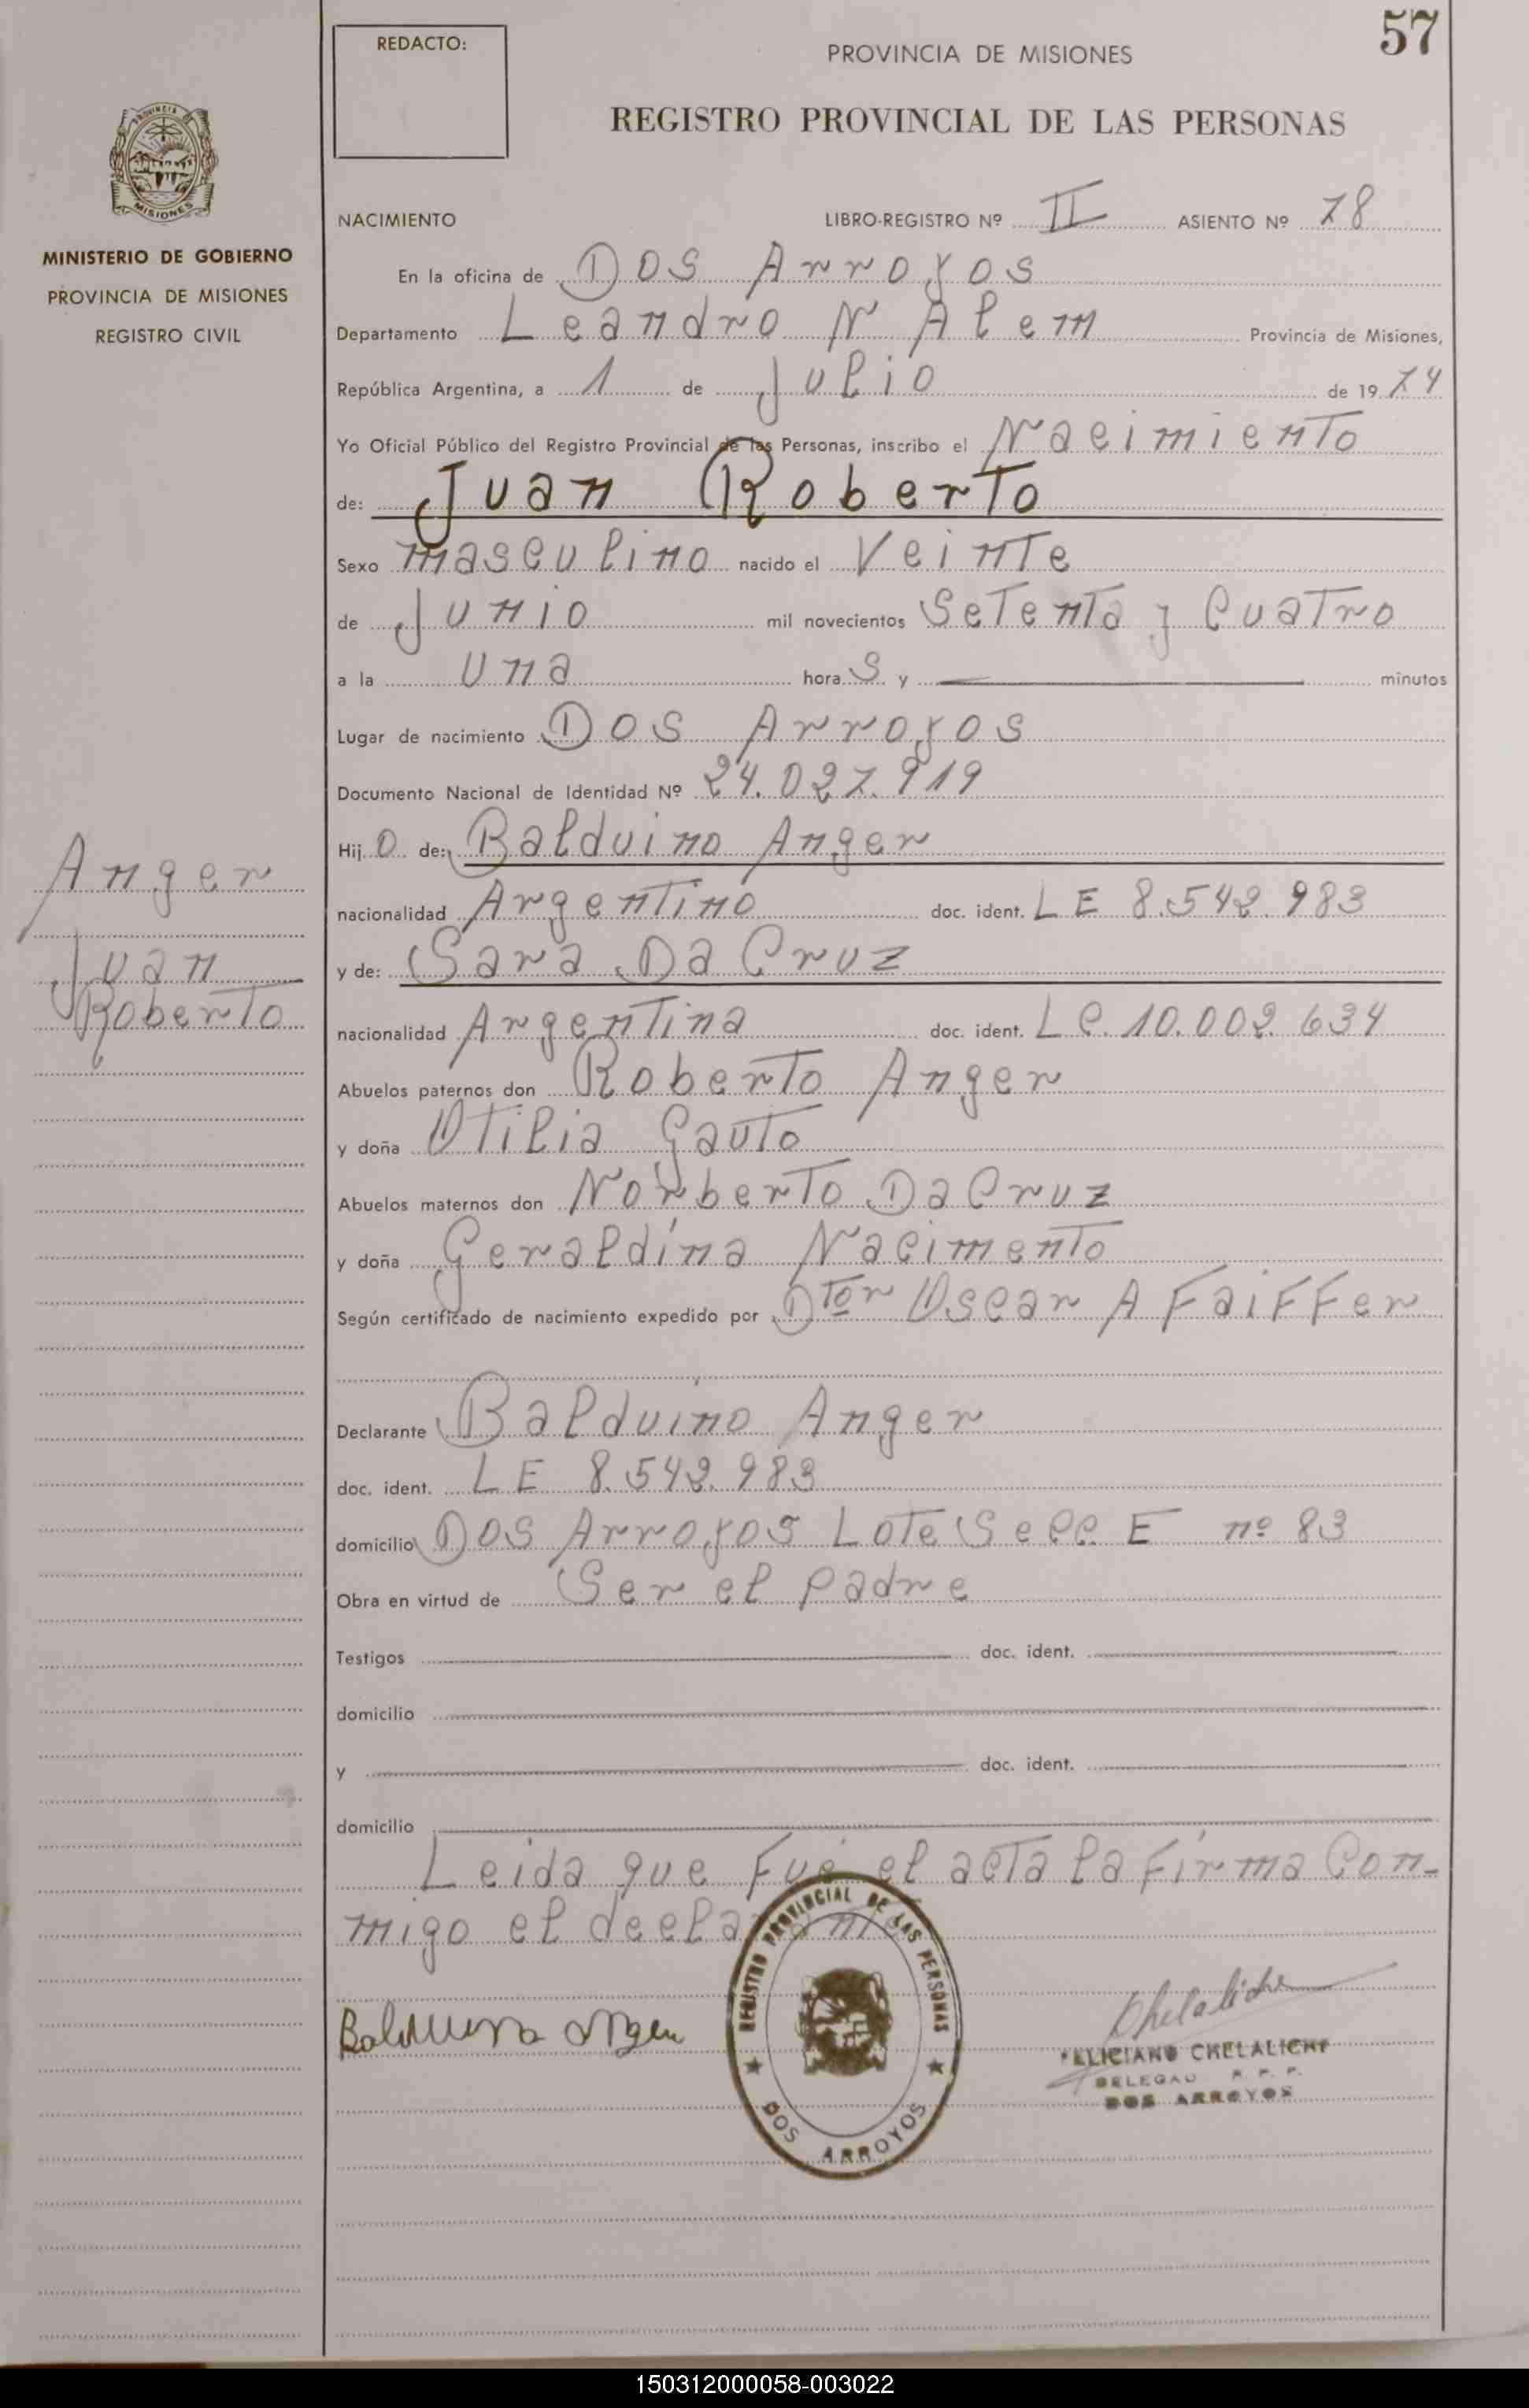 57
REDACTO:
PROVINCIA DE MISIONES
REGISTRO PROVINCIAL DE LAS PERSONAS
PROVINCIA
MISIONES
MINISTERIO DE GOBIERNO
PROVINCIA DE MISIONES
REGISTRO CIVIL
NACIMIENTO LIBRO-REGISTRO Nº II ASIENTO Nº 78
En la oficina de Dos Arroyos
Departamento Leandro N Alem Provincia de Misiones,
República Argentina, a 1 de Julio de 1974
Yo Oficial Público del Registro Provincial de las Personas, inscribo el Nacimiento
de: Juan Roberto
Sexo masculino nacido el Veinte
de Junio mil novecientos Setenta y Cuatro
a la Una horas y minutos
Lugar de nacimiento Dos Arroyos
Documento Nacional de Identidad Nº 24.027.919
Hijo de: Balduino Anger
nacionalidad Argentino doc. ident. LE 8.542.983
y de: Sara Da Cruz
nacionalidad Argentina doc. ident. LC. 10.002.634
Abuelos paternos don Roberto Anger
y doña Otilia Gauto
Abuelos maternos don Norberto Da Cruz
y doña Geraldina Nacimento
Según certificado de nacimiento expedido por Dtor Oscar A Faiffer
Declarante Balduino Anger
doc. ident. LE 8.542.983
domicilio Dos Arroyos Lote Secc. E nº 83
Obra en virtud de Ser el padre
Testigos doc. ident.
domicilio
y doc. ident.
domicilio
Leida que fué el acta la firma Con-
migo el declarante
Anger
Juan
Roberto
Balduino Anger
REGISTRO PROVINCIAL DE LAS PERSONAS
DOS ARROYOS
Chelaliche
FELICIANO CHELALICHE
DELEGADO R. P. P.
DOS ARROYOS
150312000058-003022